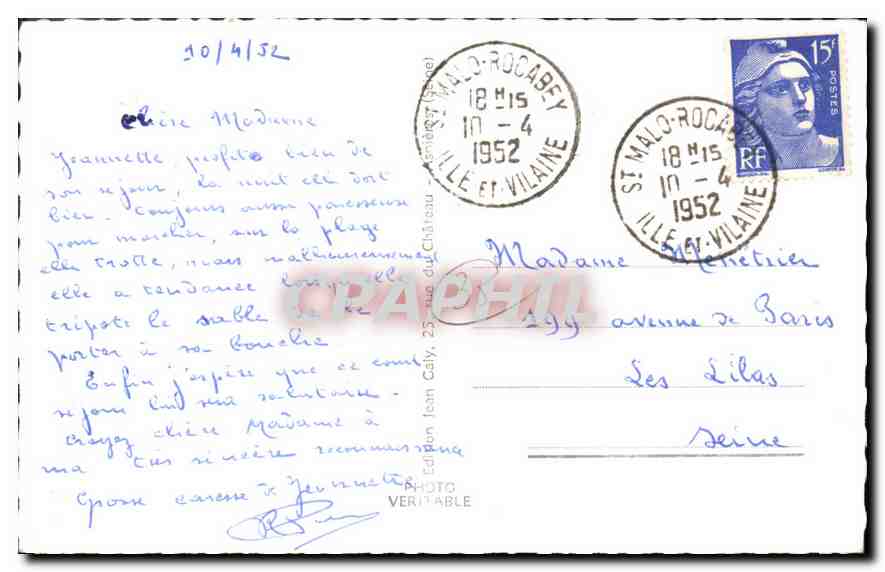 10/4/52
Chère Madame
Jeannette, profite bien de
son séjour, la nuit elle dort
bien. Toujours aussi paresseuse
pour marcher, sur la plage
elle trotte, mais malheureusement
elle a tendance lorsqu'elle
tripote le sable de le
porter à sa bouche
Enfin j'espère que ce court
séjour lui sera salutaire.
Croyez chère Madame à
ma très sincère reconnaissance
Grosse caresse de Jeannette
ST MALO-ROCABEY
18H15
10-4
1952
ILLE ET-VILAINE
ST MALO-ROCABEY
18H15
10-4
1952
ILLE ET-VILAINE
15F
POSTES
RF
Madame Menétrier
199 avenue de Paris
Les Lilas
Seine
Edition Jean Caly, 25, rue du Château - Asnières (Seine)
PHOTO
VERITABLE
CPAPHIL